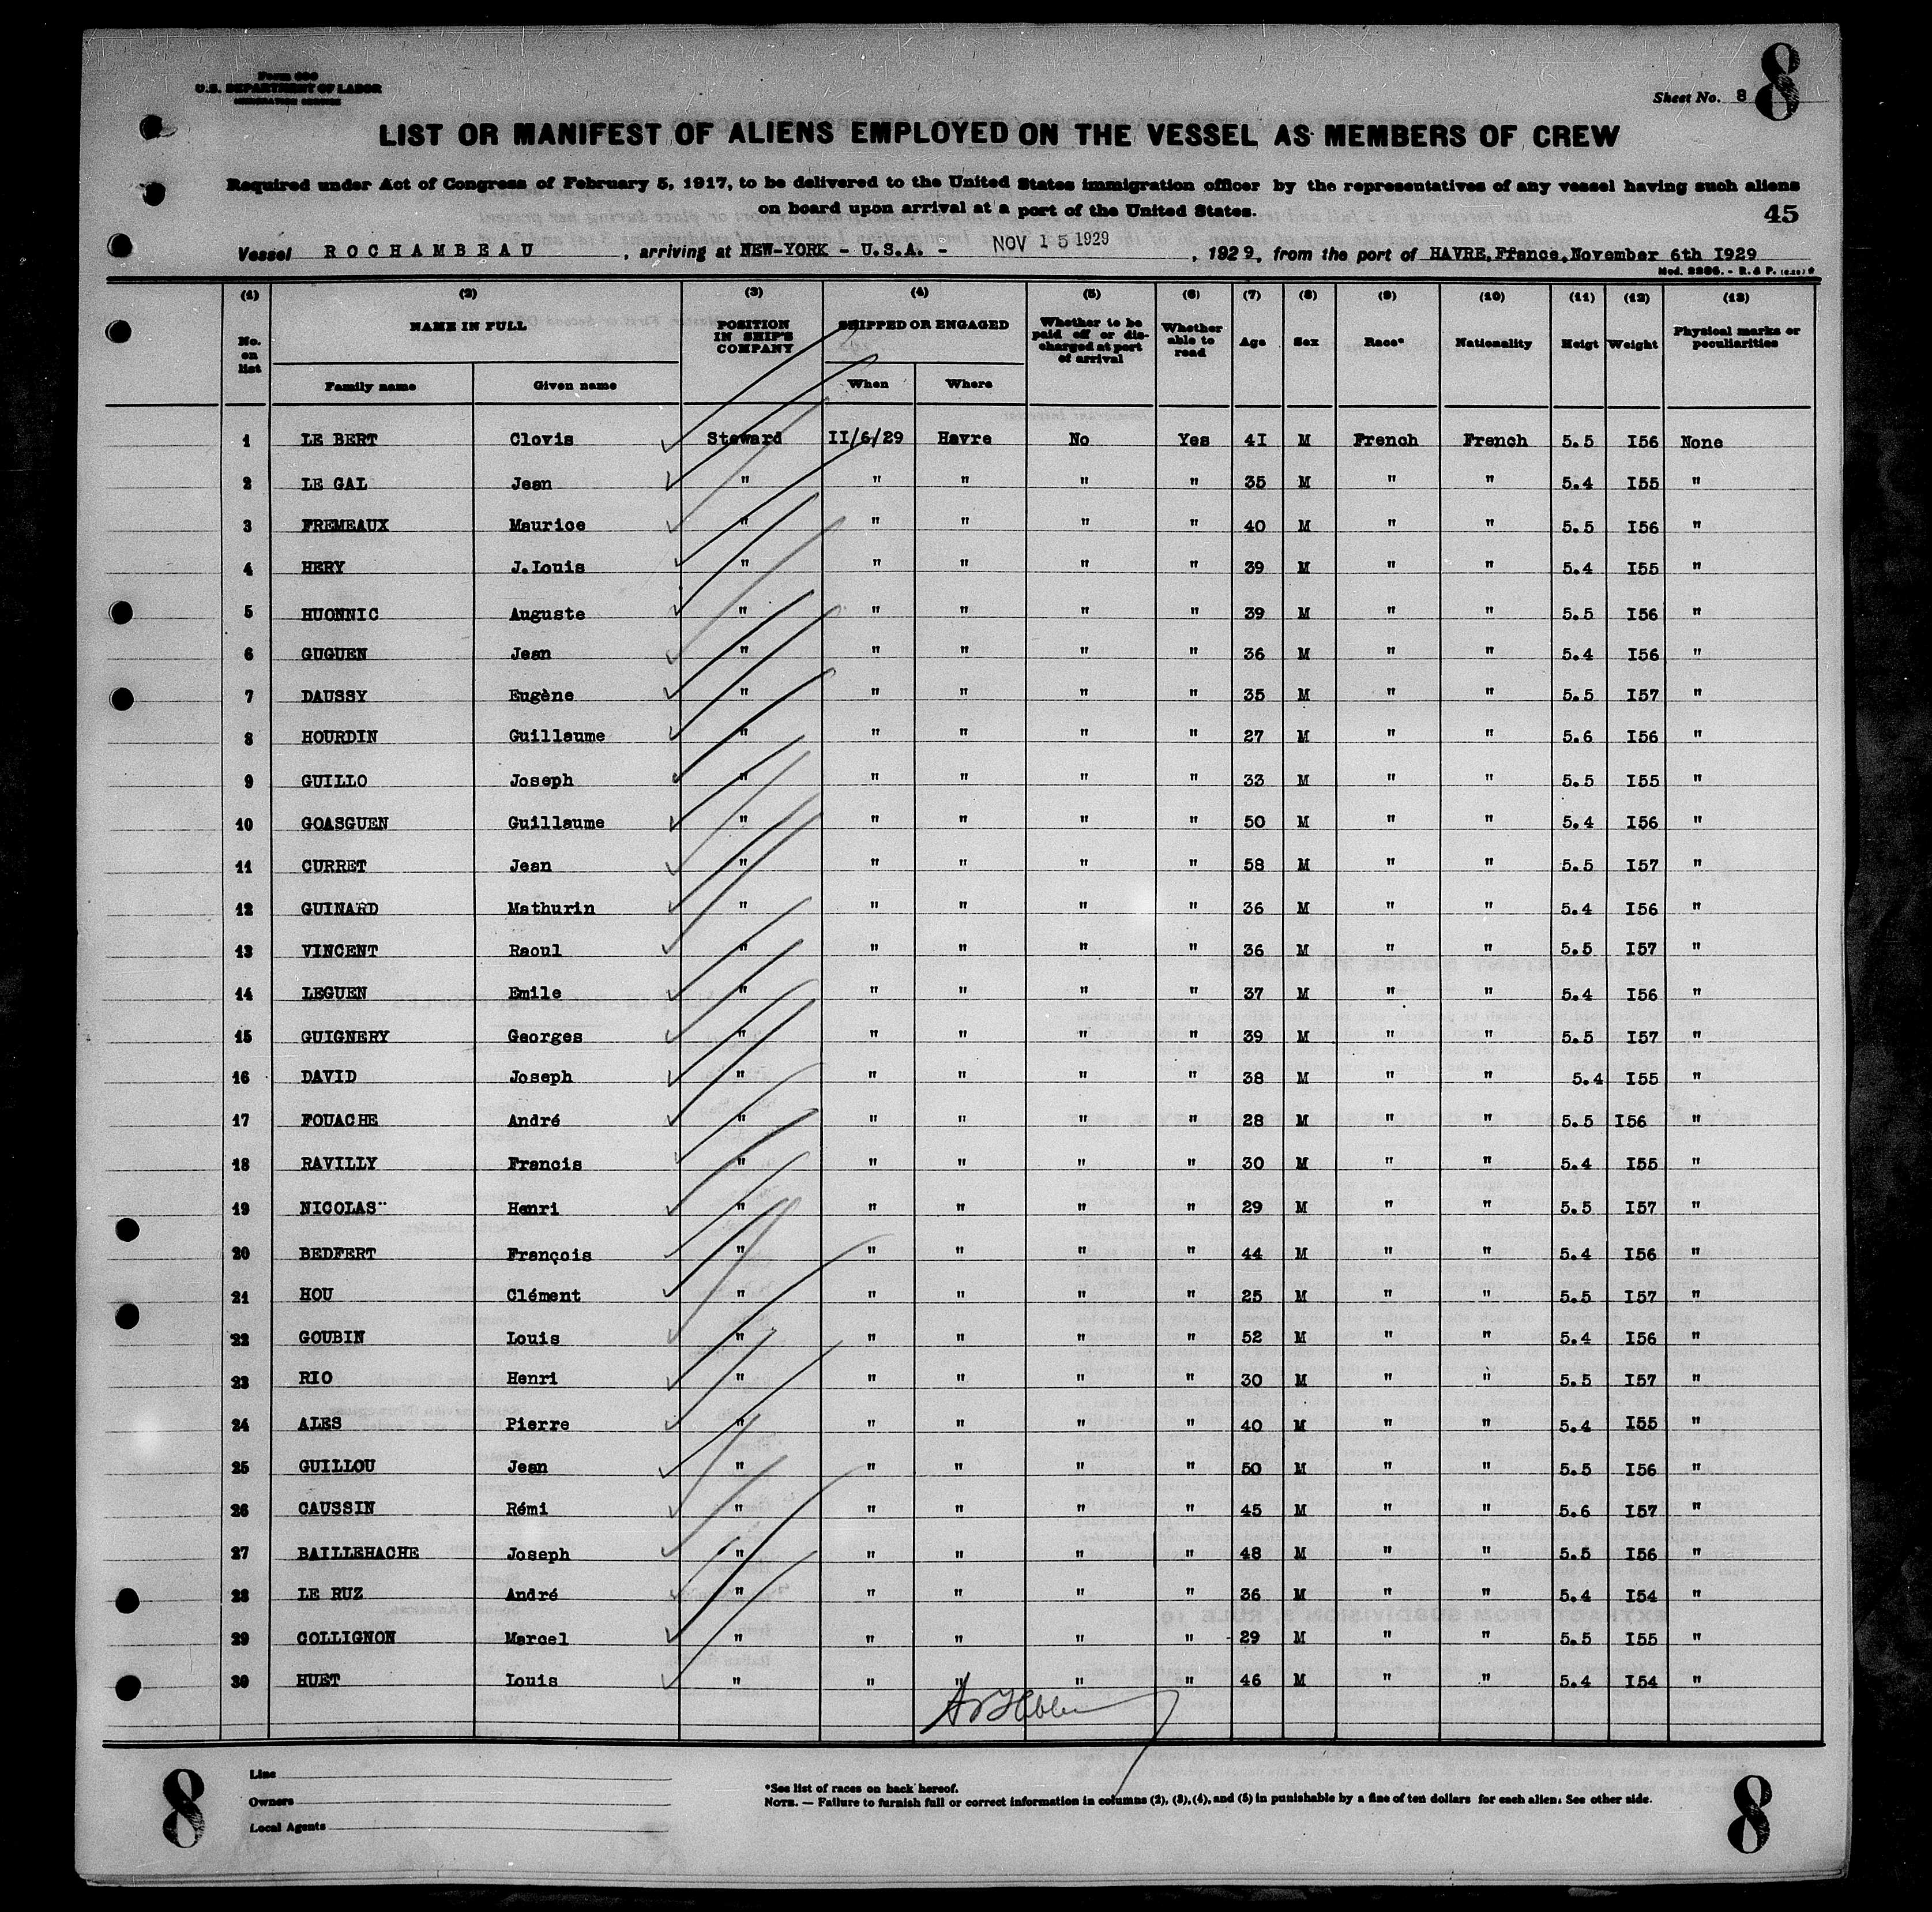 8
Form 680
U.S. DEPARTMENT OF LABOR
IMMIGRATION SERVICE
Sheet No. 8
LIST OR MANIFEST OF ALIENS EMPLOYED ON THE VESSEL AS MEMBERS OF CREW
Required under Act of Congress of February 5, 1917, to be delivered to the United States immigration officer by the representatives of any vessel having such aliens
on board upon arrival at a port of the United States.
45
Vessel ROCHAMBEAU, arriving at NEW-YORK - U.S.A. - NOV 15 1929, 1929, from the port of HAVRE, France, November 6th I929
Mod. 2286. - R. & P.
(1) (2) (3) (4) (5) (6) (7) (8) (9) (10) (11) (12) (13)
No. on list NAME IN FULL POSITION IN SHIP'S COMPANY SHIPPED OR ENGAGED Whether to be paid off or discharged at port of arrival Whether able to read Age Sex Race* Nationality Heigt Weight Physical marks or peculiarities
Family name Given name When Where
1 LE BERT Clovis Steward II/6/29 Havre No Yes 4I M French French 5.5 I56 None
2 LE GAL Jean " " " " " 35 M " " 5.4 I55 "
3 FREMEAUX Maurice " " " " " 40 M " " 5.5 I56 "
4 HERY J.Louis " " " " " 39 M " " 5.4 I55 "
5 HUONNIC Auguste " " " " " 39 M " " 5.5 I56 "
6 GUGUEN Jean " " " " " 36 M " " 5.4 I56 "
7 DAUSSY Eugène " " " " " 35 M " " 5.5 I57 "
8 HOURDIN Guillaume " " " " " 27 M " " 5.6 I56 "
9 GUILLO Joseph " " " " " 33 M " " 5.5 I55 "
10 GOASGUEN Guillaume " " " " " 50 M " " 5.4 I56 "
11 CURRET Jean " " " " " 58 M " " 5.5 I57 "
12 GUINARD Mathurin " " " " " 36 M " " 5.4 I56 "
13 VINCENT Raoul " " " " " 36 M " " 5.5 I57 "
14 LEGUEN Emile " " " " " 37 M " " 5.4 I56 "
15 GUIGNERY Georges " " " " " 39 M " " 5.5 I57 "
16 DAVID Joseph " " " " " 38 M " " 5.4 I55 "
17 FOUACHE André " " " " " 28 M " " 5.5 I56 "
18 RAVILLY Francis " " " " " 30 M " " 5.4 I55 "
19 NICOLAS Henri " " " " " 29 M " " 5.5 I57 "
20 BEDFERT François " " " " " 44 M " " 5.4 I56 "
21 HOU Clément " " " " " 25 M " " 5.5 I57 "
22 GOUBIN Louis " " " " " 52 M " " 5.4 I56 "
23 RIO Henri " " " " " 30 M " " 5.5 I57 "
24 ALES Pierre " " " " " 40 M " " 5.4 I55 "
25 GUILLOU Jean " " " " " 50 M " " 5.5 I56 "
26 CAUSSIN Rémi " " " " " 45 M " " 5.6 I57 "
27 BAILLEHACHE Joseph " " " " " 48 M " " 5.5 I56 "
28 LE RUZ André " " " " " 36 M " " 5.4 I54 "
29 COLLIGNON Marcel " " " " " 29 M " " 5.5 I55 "
30 HUET Louis " " " " " 46 M " " 5.4 I54 "
8
Line
Owners
Local Agents
*See list of races on back hereof.
NOTE. — Failure to furnish full or correct information in columns (2), (3), (4), and (5) in punishable by a fine of ten dollars for each alien. See other side.
8